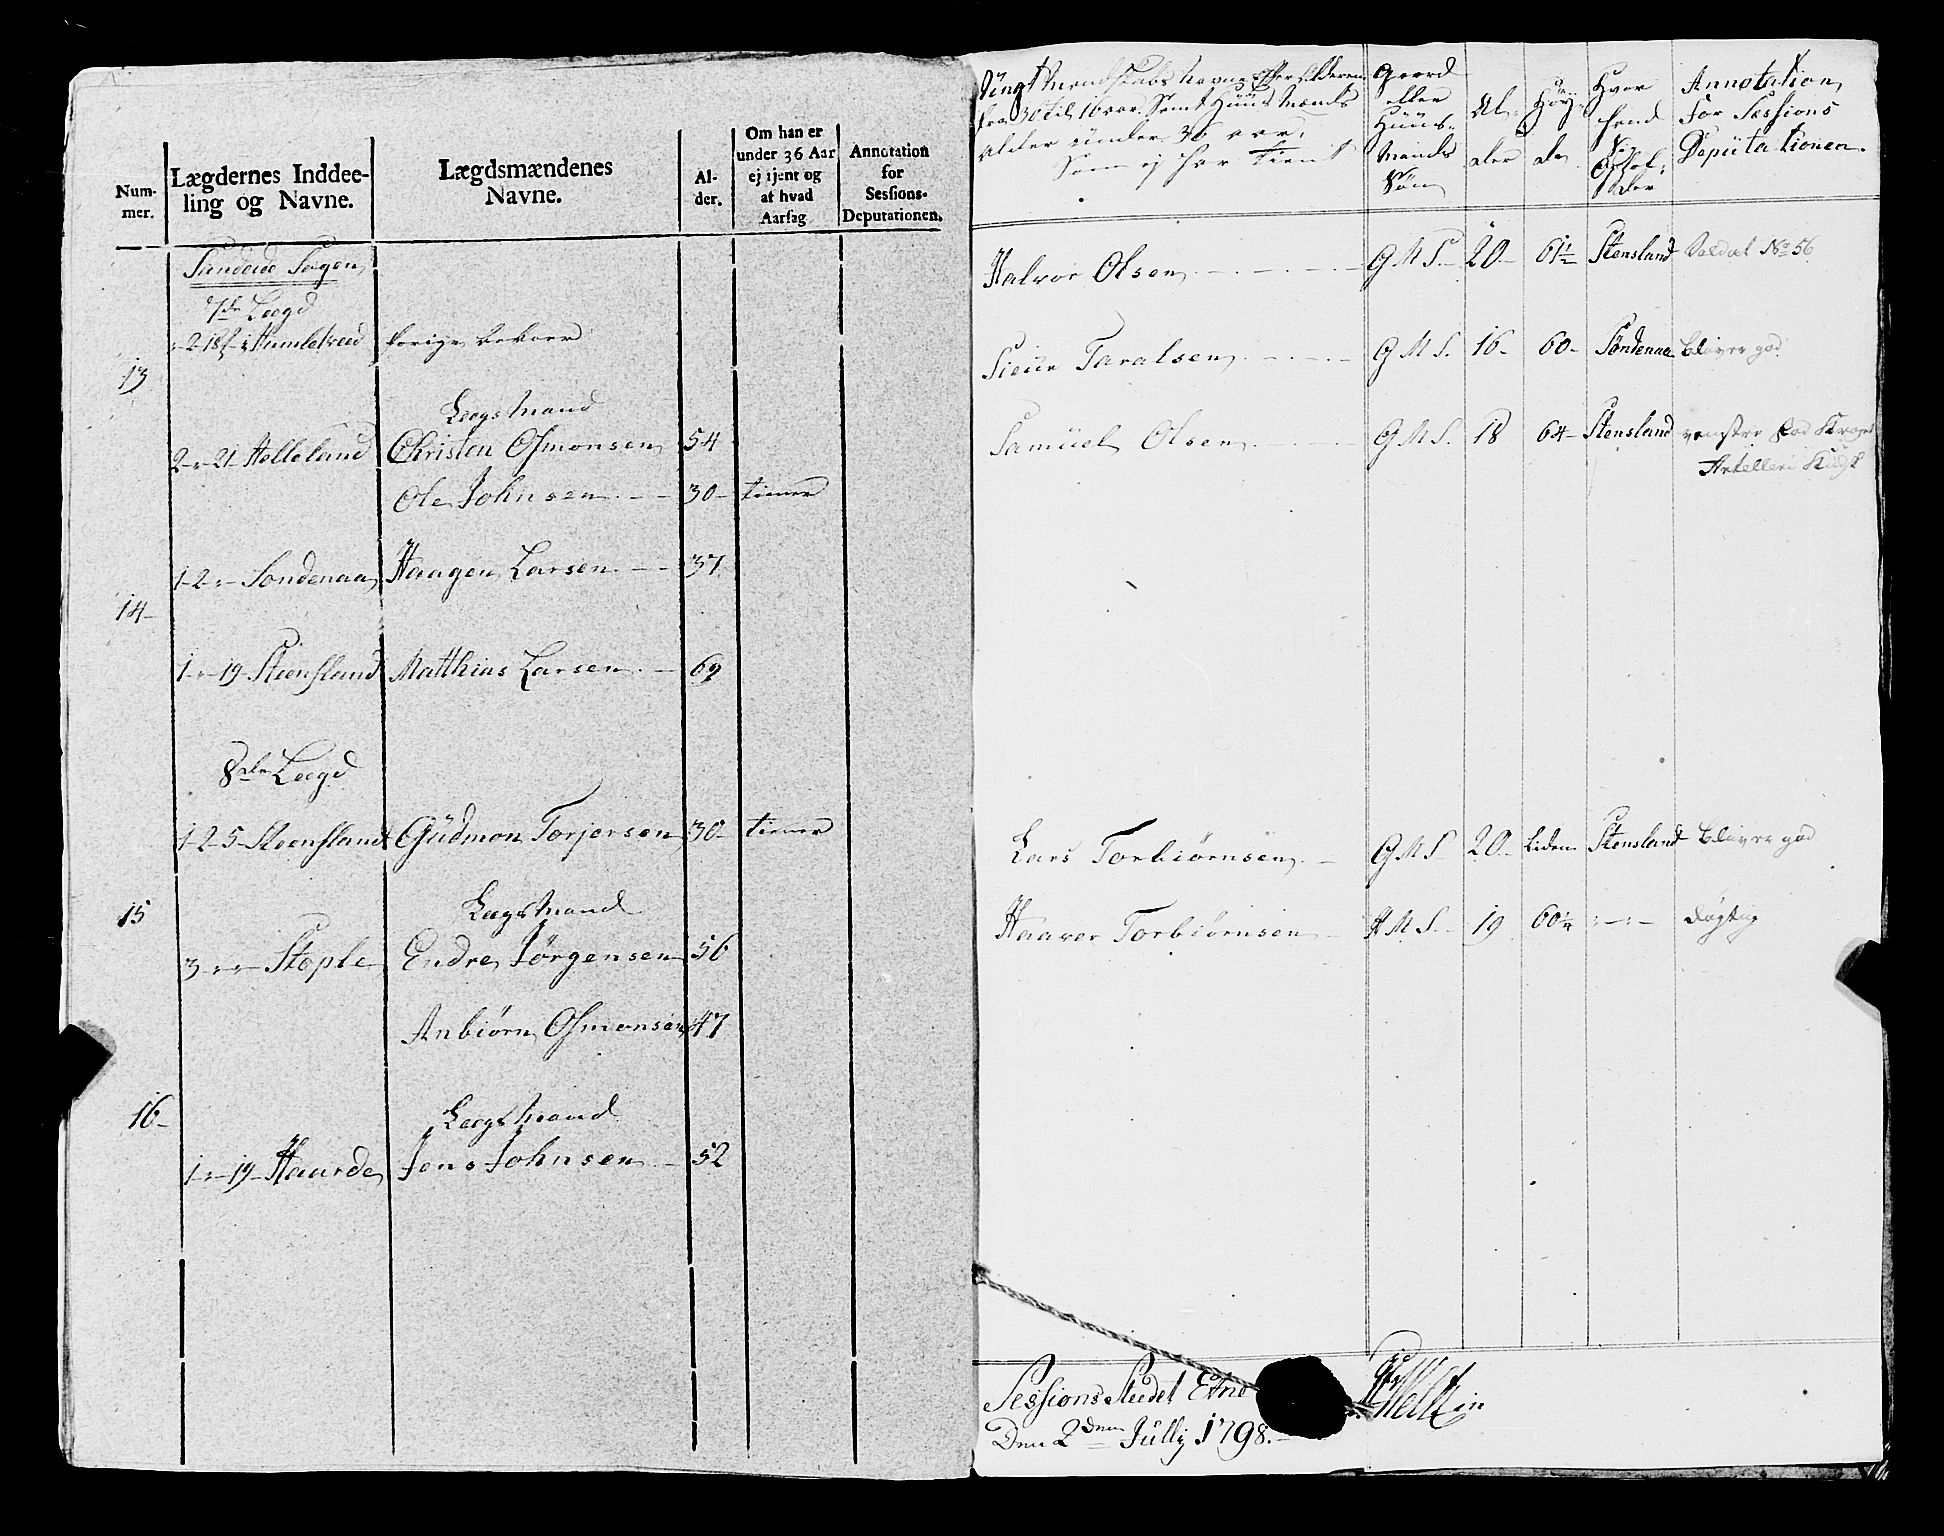 Num-
mer.
Lægdernes Inddee-
ling og Navne.
Lægdsmændenes
Navne.
Al-
der.
Om han er
under 36 Aar
ej tjent og
af hvad
Aarsag
Annotation
for
Sessions-
Deputationen.
Sandeide Sogen
7de Lægd
13
forige beboer
Lægsmand
2 - 21 Helleland Christen Osmonsen 54
Ole Johnsen 30 tiener
1-2 - Søndenaa Haagen Larsen 37
14
1 - 19 Steensland Matthias Larsen 69
8de Lægd
1-2-5 Steensland Güdmon Torjersen 30 tiener
15
Lægsmand
3 - - Stople Endre Jørgensen 56
Anbiørn Osmonsen 47
16
Lægsmand
1 - 19 Haarde Jens Johnsen 52
Üngt Mandskabs Navne Efter Alderen
fra 30 til 16 aar. Samt Hüüs Mænds
alder ünder 36 aar,
Som ej har tient
Gaard
eller
Hüüs-
Mands
Søn
Al-
der
Høy-
de
Hvor
hand
Sig
Ophol-
der
Annotation
for Sessions
Deputationen.
Halvor Olsen G M S. 20 61½ Stensland Soldat No 56
Siür Taralsen G M S. 16 60 Søndenaa bliver god
Samüel Olsen G M S. 18 64 Stensland venstre
Artelleri
Lars Torbiørnsen G M S 20 liden Stensland bliver god
Haaver Torbiørnsen H M S. 19 60¼ dügtig
Sessions Stedet Etne
Den 2den Jülly 1798.